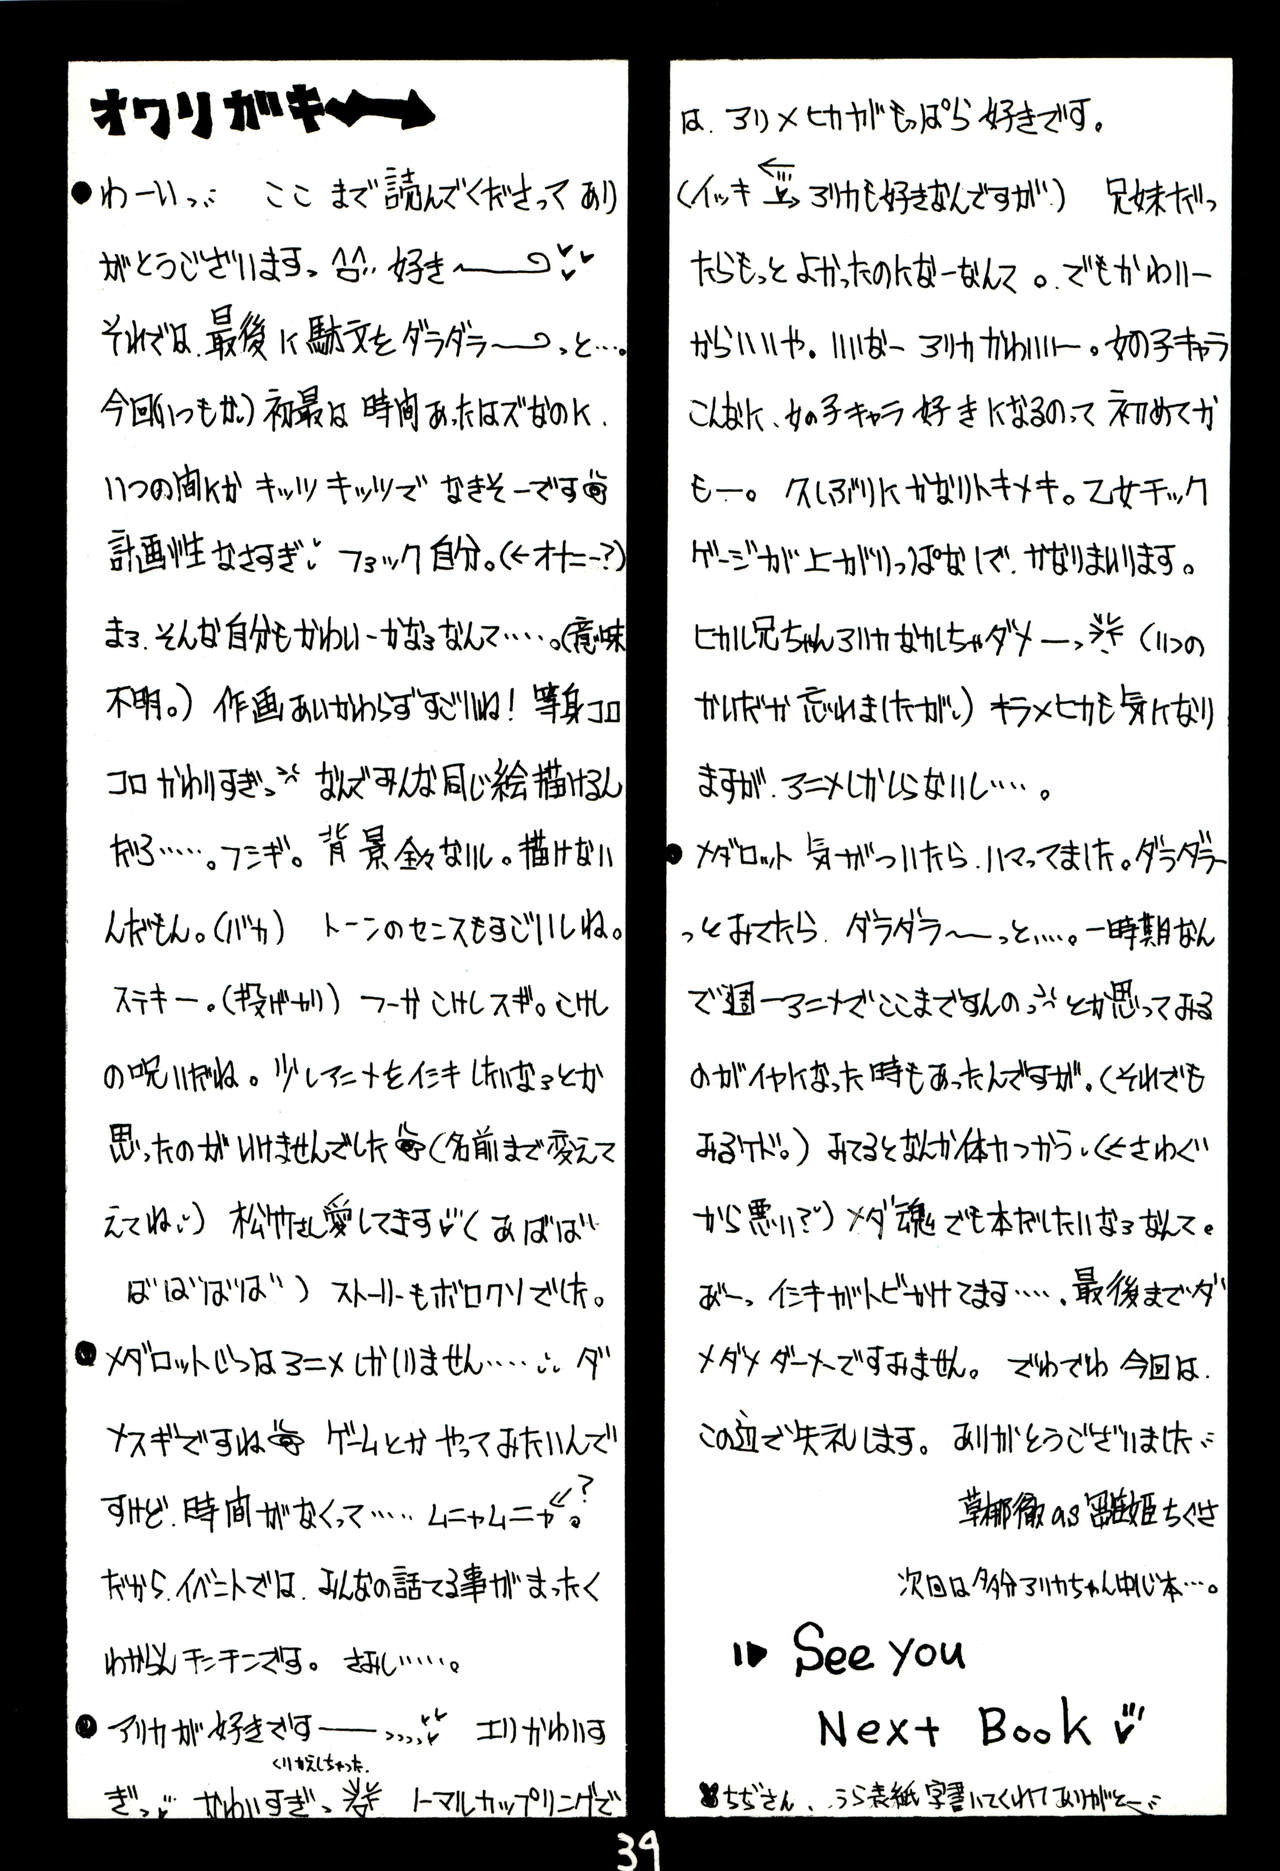 オワリガキ
●わーいっ ここまで読んでくださってあり
がとうございますっ 好き〜
それでは、最後に駄文をダラダラ〜っと…。
今回(いつもか)初最は時間あったはズなのに、
いつの間にか キッツキッツで なきそーです
計画性なさすぎ フヨック自分。(←オナニー?)
まろ、そんな自分もかわいーかなろなんて……。(意味
不明。) 作画あいかわらずすごいね! 等身コロ
コロかわりすぎっ なんでみんな同じ絵描けるん
だろ……。フシギ。背景全々ないし。描けない
んだもん。(バカ) トーンのセンスもすごいしね。
ステキー。(投げやり) つーかこけしスギ。こけし
の呪いだね。少しアニメをイシキしたいなろとか
思ったのがいけませんでした(名前まで変えて
えてね) 松竹さん愛してます(あばば
ばばばば) ストーリーもボロクソでした。
●メダロットじつはアニメしかしりません…… ダ
メスギですね ゲームとかやってみたいんで
すけど、時間がなくって…… ムニャムニャ。←?
だから、イベントでは、みんなの話てる事がまったく
わからんチンチンです。さみし……。
●アリカが好きですーっっっっ エリかわいす
くりかえしちゃった
ぎっ かわいすぎっ トーマルカップリングで
は、アリメヒカがもっぱら好きです。
(イッキ アリカも好きなんですが) 兄妹だっ
たらもっとよかったのになーなんて。でもかわいー
からいいや。いいなー アリカかわいいー。女の子キャラ
こんなに、女の子キャラ好きになるのって初めてか
もー。久しぶりにかなりトキメキ。乙女チック
ゲージが上がりっぱなしで、かなりまいります。
ヒカル兄ちゃんアリカなかしちゃダメーっ (いつの
かいだか忘れましたが) キラメヒカも気になり
ますが、アニメしかしらないし…。
●メダロット気がついたら、ハマってました。ダラダラー
っとみてたら、ダラダラ〜っと…。一時期なん
で週一アニメでここまですんのっ とか思ってみる
のがイヤになった時もあったんですが。(それでも
みるケド。) みてるとなんか体力つかう。(←さわぐ
から悪い?) メダ魂でも本だしたいなろなんて。
あーっ イシキがトビかけてます…。最後までダ
メダメダーメですみません。でわでわ今回は、
この辺で失礼します。ありがとうございました
草那徹as 雛姫ちぐさ
次回は多分アリカちゃん中心本…。
See you
Next Book
ちぢさん、うら表紙字書いてくれてありがとー
39